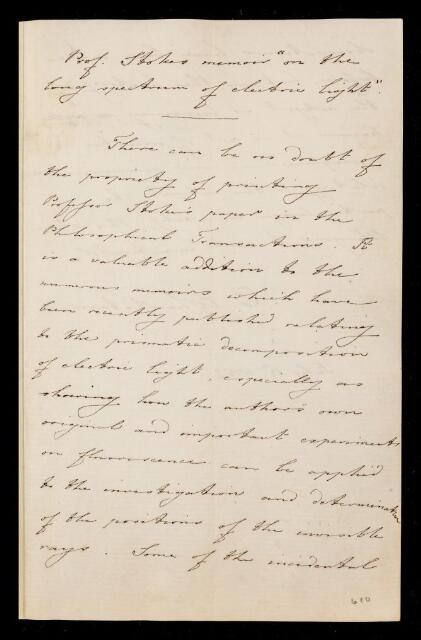 Prof. Stokes memoir "on the
long spectrum of electric light".
There can be no doubt of
the propriety of printing
Professor Stokes's paper in the
Philosophical Transactions. It
is a valuable addition to the
numerous memoirs which have
been recently published relating
to the prismatic decomposition
of electric light, especially as
showing how the author's own
original and important experiments
on fluorescence can be applied
to the investigation and determination
of the positions of the invisible
rays. Some of the incidental